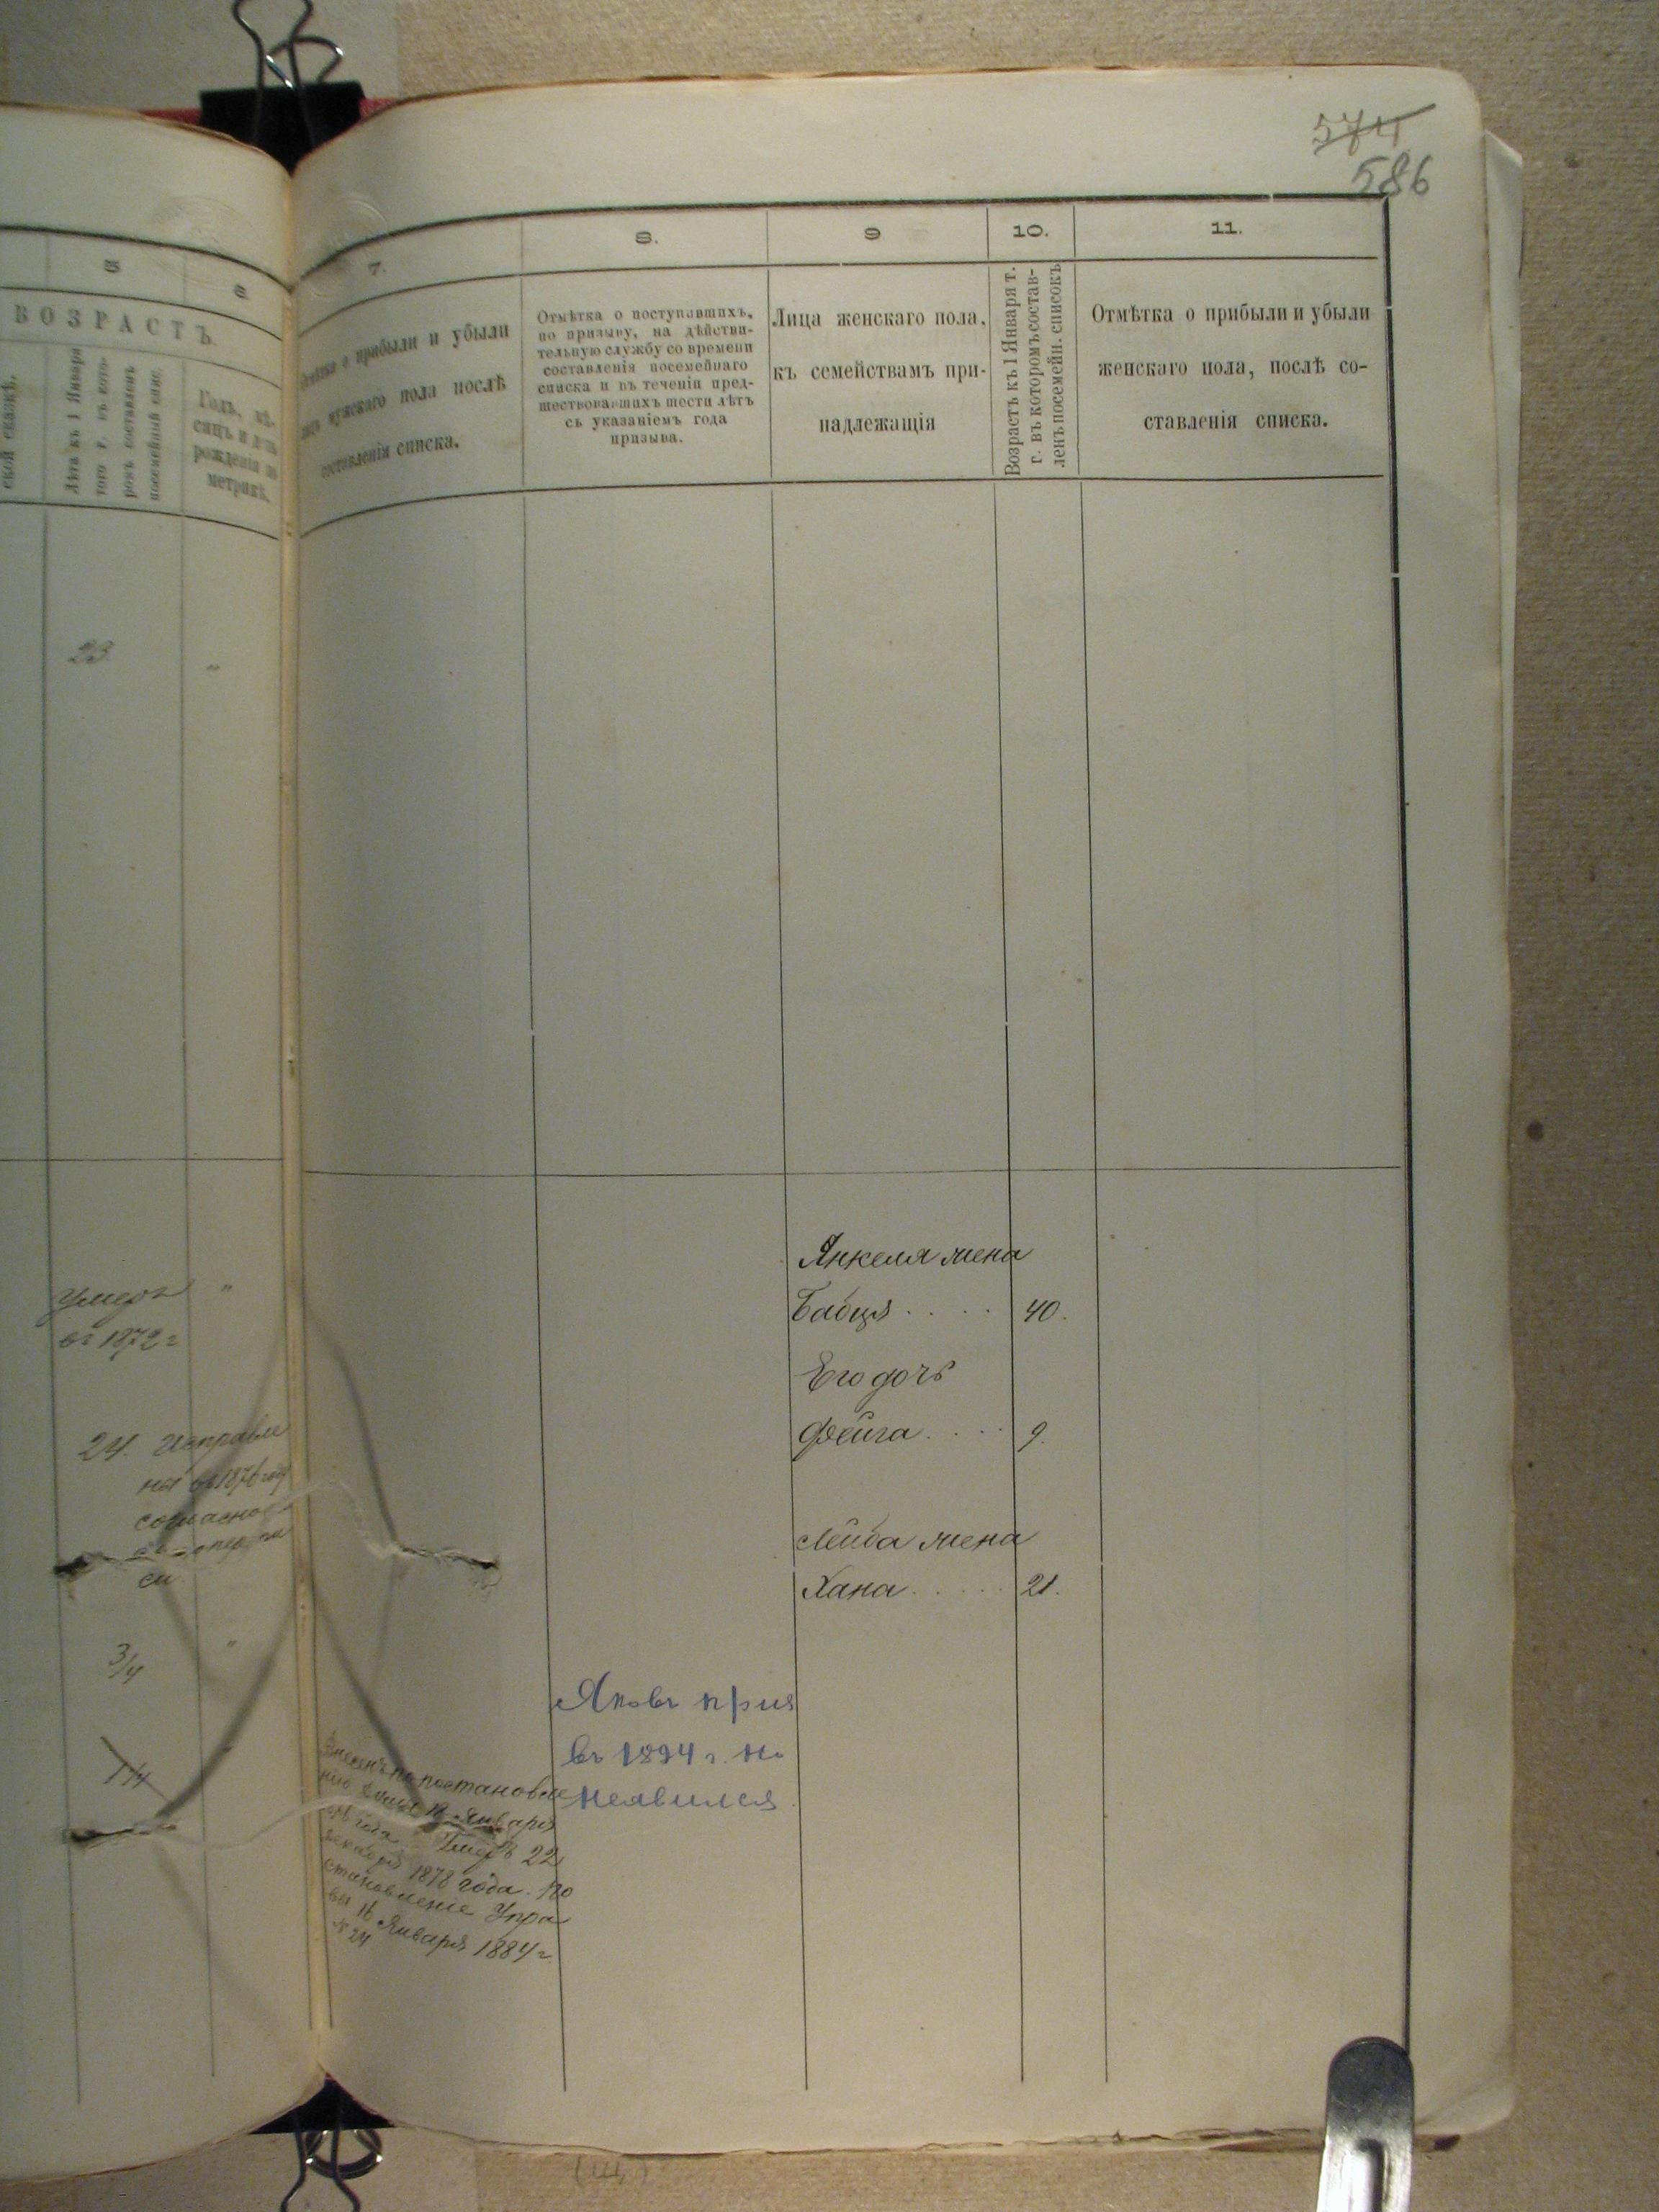 574
586
5
6
ВОЗРАСТЪ.
ской сказкѣ.
Лѣта къ 1 Января
того г. въ кото-
ромъ составленъ
посемейный спис.
Годъ, мѣ-
сяцъ и день
рожденія по
метрикѣ.
23
"
Умеръ
въ 1872 г
"
24. Исправле
ны въ 1876 году
согласно
си
3/4
"
1/4
7.
о прибыли и убыли
мужскаго пола послѣ
составленія списка.
8.
Отмѣтка о поступавшихъ,
по призыву, на дѣйстви-
тельную службу со времени
составленія посемейнаго
списка и въ теченіи пред-
шествовавшихъ шести лѣтъ
съ указаніемъ года
призыва.
9
Лица женскаго пола,
къ семействамъ при-
надлежащія
10.
Возрастъ къ 1 Января т.
г. въ которомъ состав-
ленъ посемейн. списокъ
11.
Отмѣтка о прибыли и убыли
женскаго пола, послѣ со-
ставленія списка.
Янкеля жена
Бабця . . . . 40.
Его дочь
Фейга . . . . 9.
Лейба жена
Хана . . . . . 21.
Яковъ приз
въ 1894 г. но
неявился.
Внесенъ по постановле
нію 18 Января
года Умеръ 22
1878 года. По
становленіе Упра
вы 16 Января 1884 г.
№ 24